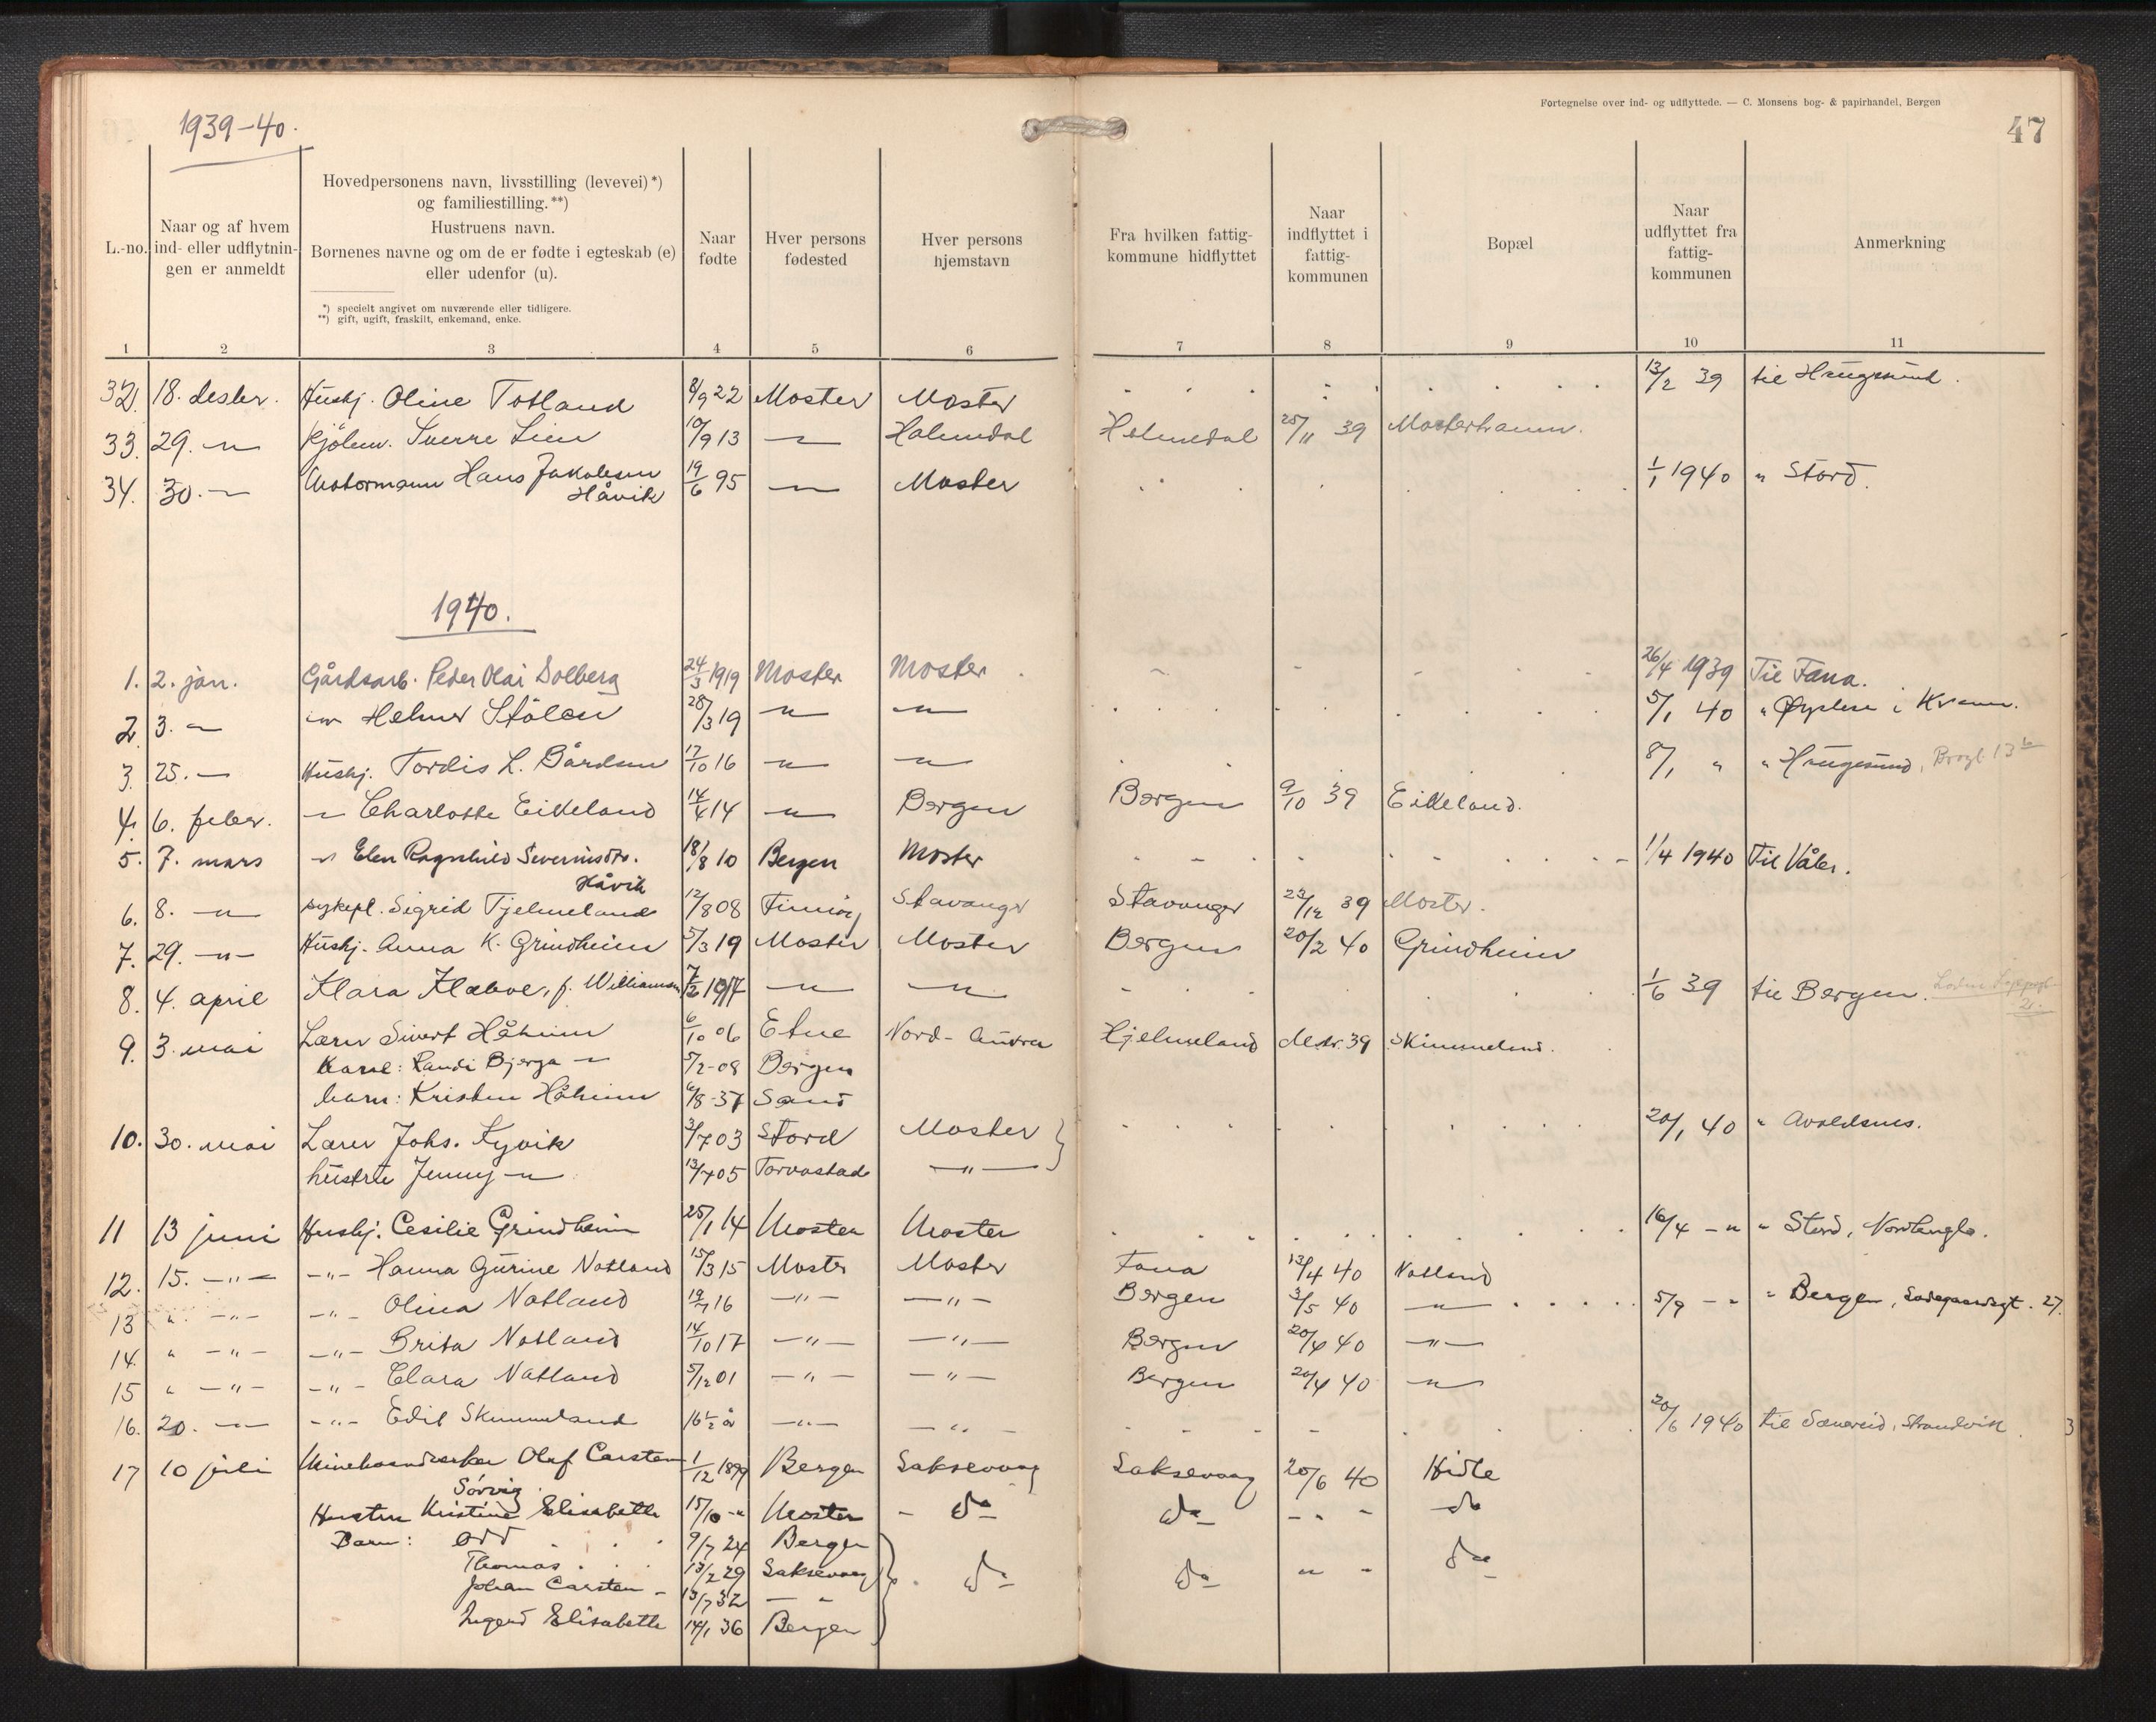 1939-40.
Fortegnelse over ind- og udflyttede. — C. Monsens bog- & papirhandel, Bergen
47
L.-no.
Naar og af hvem
ind- eller udflytnin-
gen er anmeldt
Hovedpersonens navn, livsstilling (levevei)*)
og familiestilling.**)
Hustruens navn.
Børnenes navne og om de er fødte i egteskab (e)
eller udenfor (u).
*) specielt angivet om nuværende eller tidligere.
**) gift, ugift, fraskilt, enkemand, enke.
Naar
fødte
Hver persons
fødested
Hver persons
hjemstavn
Fra hvilken fattig-
kommune hidflyttet
Naar
indflyttet i
fattig-
kommunen
Bopæl
Naar
udflyttet fra
fattig-
kommunen
Anmerkning
1 2 3 4 5 6 7 8 9 10 11
32. 18. desbr. Hushj. Oline Totland 8/9 22 Moster Moster 13/2 39 til Haugesund.
33. 29. -"- Sverre Lien 10/9 13 -"- Holmedal Holmedal 25/11 39 Mosterhamn.
34. 30. -"- Motormann Hans Jakobsen 19/6 95 -"- Moster 1/1 1940 " Stord.
Håvik
1940.
1. 2. jan. Gårdsarb. Peder Olai Solberg 24/3 1919 Moster Moster 26/4 1939 Til Fana.
2. 3. -"- -"- Helmer Stålen 28/3 19 -"- -"- 5/1 40 " Øystese i Kvam.
3. 25. -"- Hushj. Tordis L. Bårdsen 17/10 16 -"- -"- 8/1 " " Haugesund, 13
4. 6. febr. -"- Charlotte Eikeland 14/4 14 -"- Bergen Bergen 9/10 39 Eikeland.
5. 7. mars -"- Elen Ragnhild Severinsdtr. 18/8 10 Bergen Moster 1/4 1940 Til Våler.
Håvik
6. 8. -"- sykepl. Sigrid Tjelmeland 12/8 08 Finnöy Stavanger Stavanger 22/12 39 Moster.
7. 29. -"- Hushj. Anna K. Grindheim 5/3 19 Moster Moster Bergen 20/2 40 Grindheim
8. 4. april Klara Klæboe, f. Williamsen 7/2 1917 -"- -"- 1/6 39 til Bergen.
9. 3. mai Lærer Sivert Håheim 6/10 06 Etne Nord-Audna Hjelmeland desbr. 39 Skimmeland.
Kone: Randi Bjerga -"- 5/2-08 Bergen
barn: Kristen Håheim 6/8-37 Sand
10. 30. mai Lærer Johs. Kyvik 3/7 03 Stord Moster 20/1 40 " Avaldsnes.
hustru Jenny -"- 13/7 05 Torvastad -"-
11 13 juni Hushj. Cesilie Grindheim 25/1 14 Moster Moster 16/4 -"- " Stord, Nordhuglo.
12. 15. -"- -"- Hanna Gurine Notland 15/3 15 Moster Moster Fana 13/4 40 Notland
13 " -"- -"- Olina Notland 19/7 16 -"- -"- Bergen 3/5 40 -"- 5/9 -"- " Bergen, Ladegaardsgt. 27.
14. " -"- -"- Brita Notland 14/10 17 -"- -"- Bergen 20/4 40 -"-
15 " -"- -"- Clara Notland 5/12 01 -"- -"- Bergen 20/4 40 -"-
16. 20. -"- -"- Edit Skimmeland 16½ år -"- -"- 20/6 1940 til Sævareid, Strandvik. 3
17 10 juli Minehaandverker Oluf Carsten 1/12 1899 Bergen Laksevaag Laksevaag 20/6 40 Hidle
Sörvig
Hustru Kristine Elisabeth 15/10 -"- Moster - do do - " - do
Barn: Odd 9/7 24 Bergen
Thomas 13/2 29 Laksevaag do do " - do
Johan Carsten - 13/7 32 - "
Ingerd Elisabeth 14/1 36 Bergen